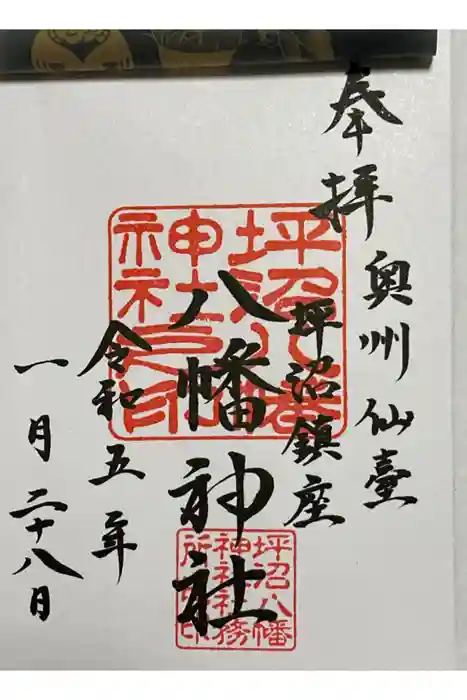 奉拝
奥州仙臺
坪沼鎮座
八幡神社
令和五年
一月二十八日
坪沼八幡
神社之印
坪沼八幡
神社社務
所之印